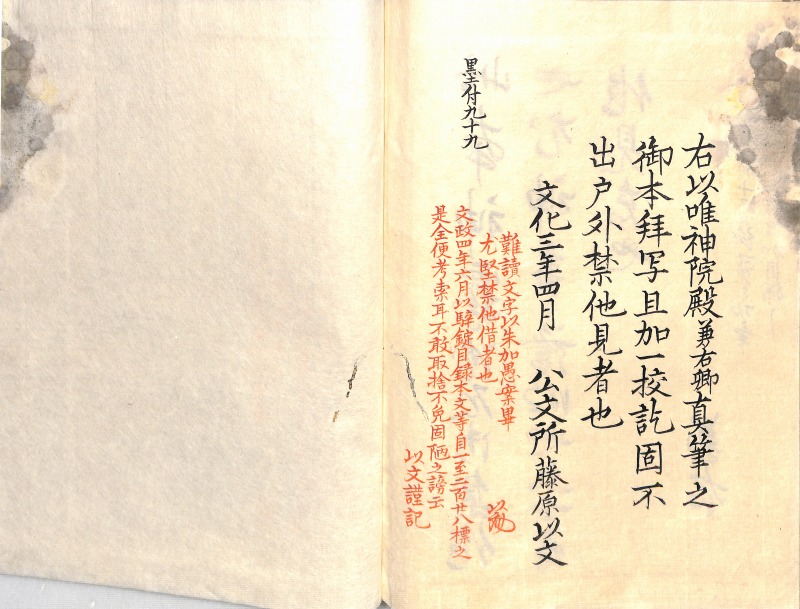 右以唯神院殿兼右卿真筆之
御本拝写且加一挍訖固不
出戸外禁他見者也
文化三年四月　公文所藤原以文
難讀文字以朱加愚案畢
尤堅禁他借者也
文政四年六月以騂錠目録本文等自一至二百廿八標之
是全便考索耳不敢取捨不免固陋之謗云
以文謹記
墨付九十九